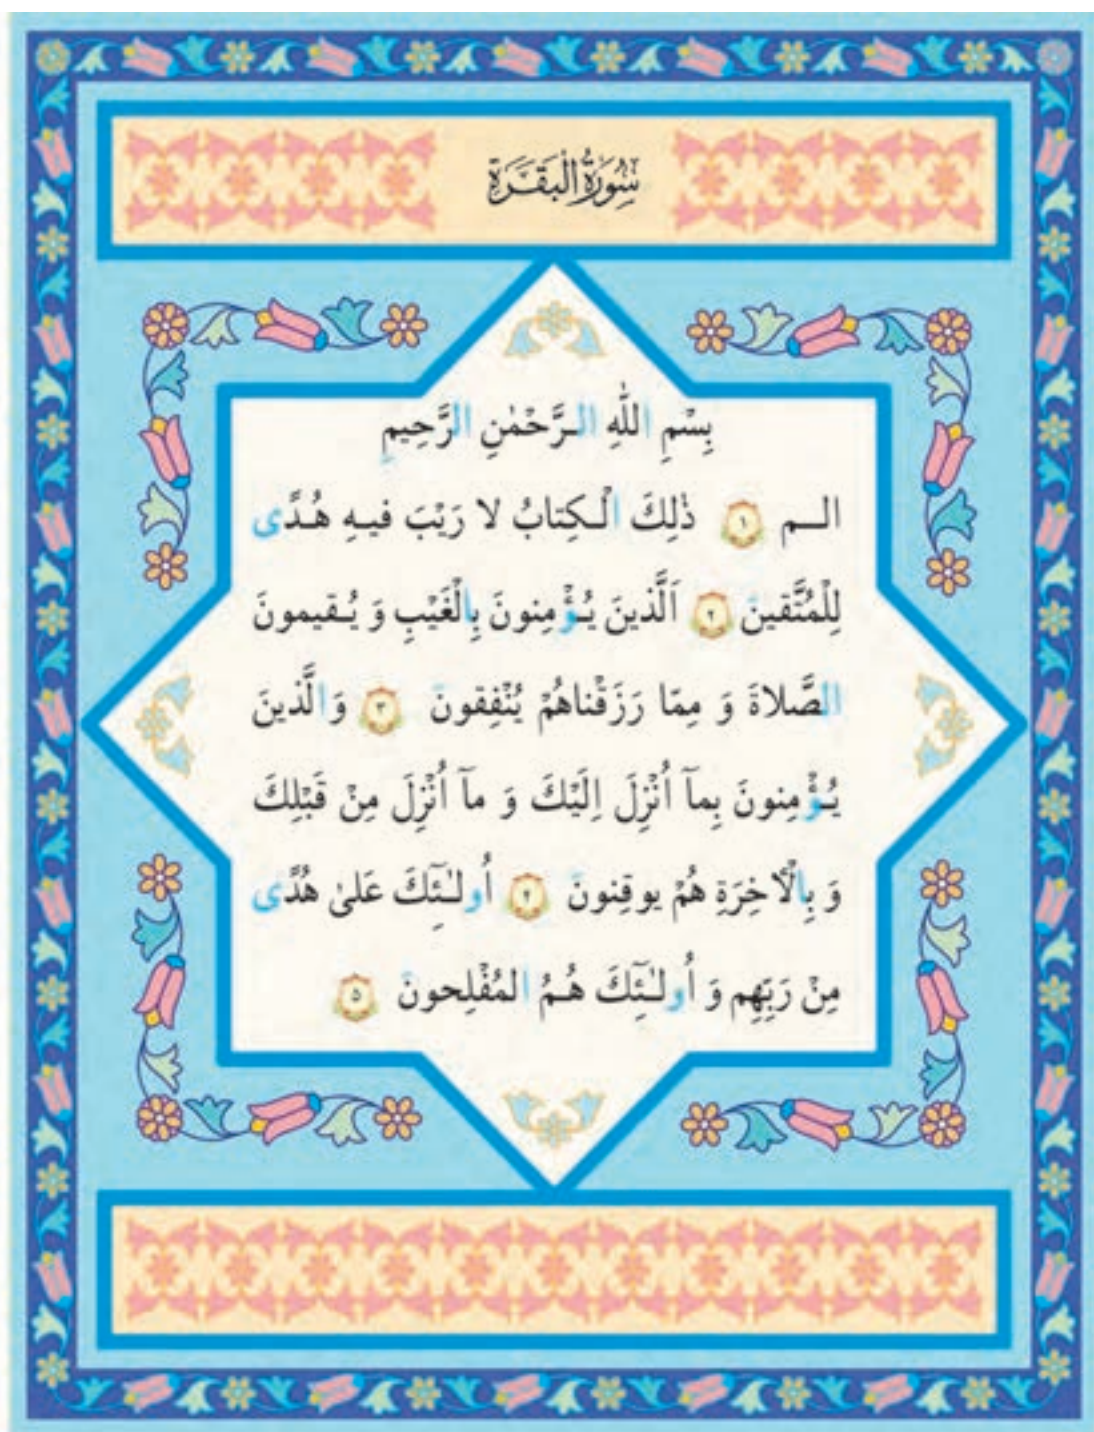 سُورَةُ الْبَقَرَةِ
بِسْمِ اللّٰهِ الرَّحْمٰنِ الرَّحِيمِ
الـم ﴿۱﴾ ذٰلِكَ الْكِتابُ لا رَيْبَ فيهِ هُدًى
لِلْمُتَّقينَ ﴿۲﴾ اَلَّذينَ يُؤْمِنونَ بِالْغَيْبِ وَ يُقيمونَ
الصَّلاةَ وَ مِمّا رَزَقْناهُمْ يُنْفِقونَ ﴿۳﴾ وَالَّذينَ
يُؤْمِنونَ بِمآ اُنْزِلَ اِلَيْكَ وَ مآ اُنْزِلَ مِنْ قَبْلِكَ
وَ بِالْاٰخِرَةِ هُمْ يوقِنونَ ﴿۴﴾ اُولٰـئِٓكَ عَلىٰ هُدًى
مِنْ رَبِّهِم وَ اُولٰـئِٓكَ هُمُ المُفْلِحونَ ﴿۵﴾